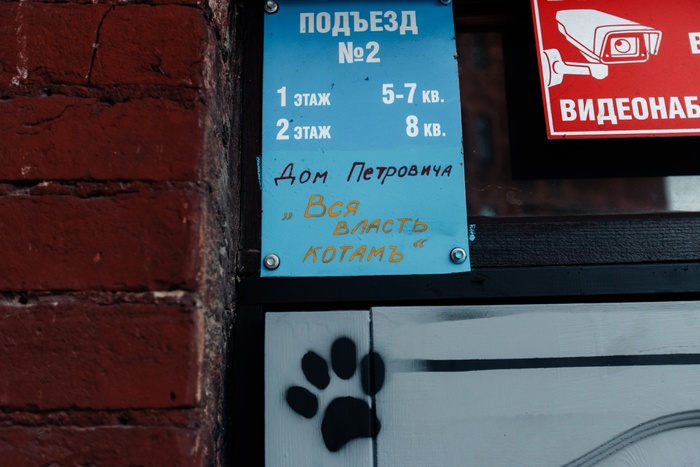 ПОДЪЕЗД
№2
1 ЭТАЖ 5-7 КВ.
2 ЭТАЖ 8 КВ.
Дом Петровича
„Вся
власть
котамъ“
ВИДЕОНАБ